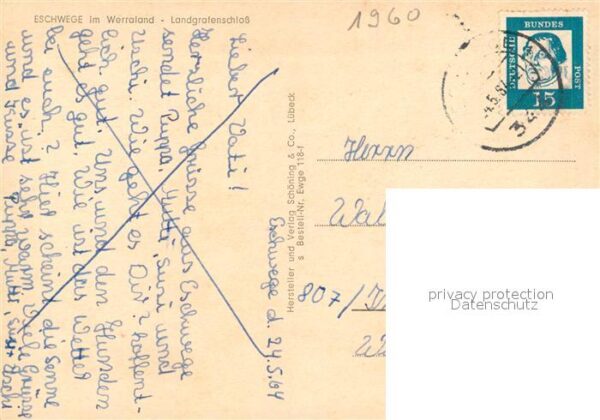 ESCHWEGE im Werraland - Landgrafenschloß
1960
DEUTSCHE
BUNDES
POST
15
Eschwege d. 24.5.64
Lieber Vati!
Herzliche Grüsse aus Eschwege
sendet Puppa, Mutti, Susi und
Uschi. Wie geht es Dir? hoffent-
lich gut. Uns und den
geht es gut. Wie ist das Wetter
bei euch? Hier scheint die Sonne
und es ist sehr warm Viele Grüsse
und Küsse Puppa, Mutti, Susi + Uschi
Hersteller und Verlag Schöning & Co., Lübeck
Bestell-Nr. Ewge 118-f
Herrn
Wal
807/
privacy protection
Datenschutz